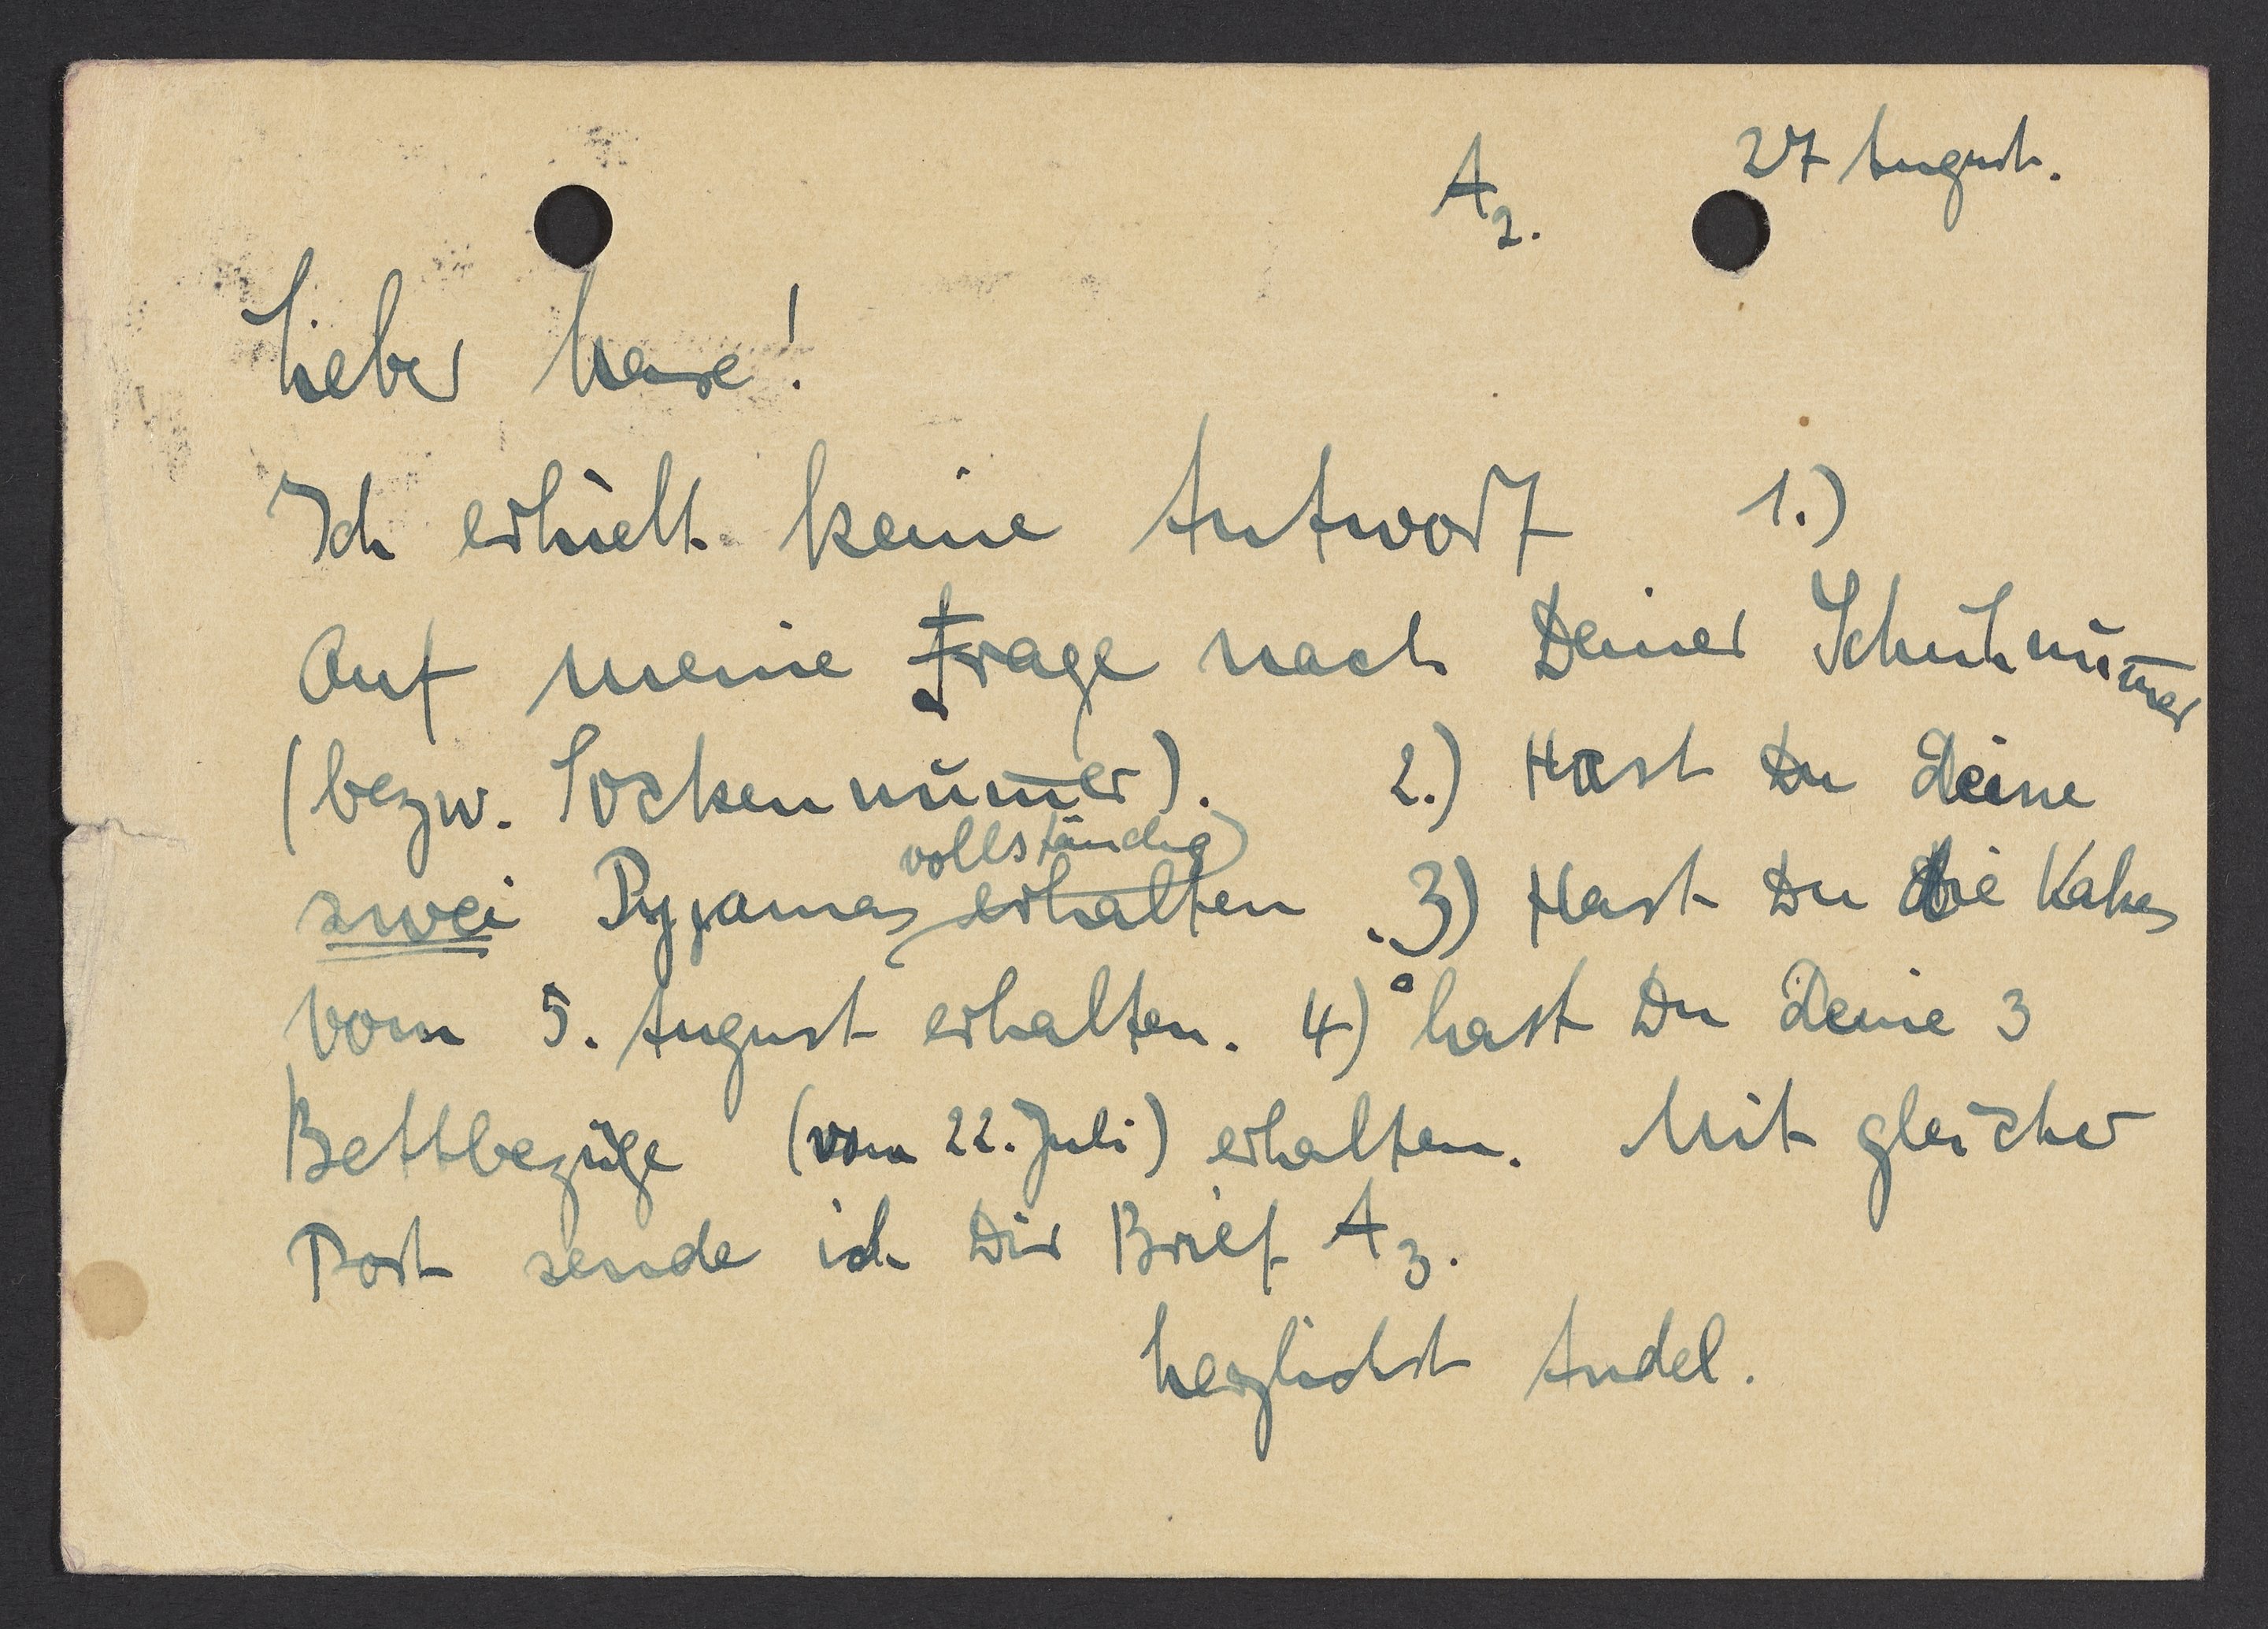 A2. 27 August.
Lieber Hase!
Ich erhielt keine Antwort 1.)
auf meine Frage nach Deiner Schuhnum̄er
(bezw. Sockennum̄er). 2.) Hast Du deine
vollständig
zwei Pyjamas erhalten. 3) Hast Du die Kakes
vom 5. August erhalten. 4) hast Du deine 3
Bettbezüge (vom 22. Juli) erhalten. Mit gleicher
Post sende ich Dir Brief A3.
herzlichst Andel.